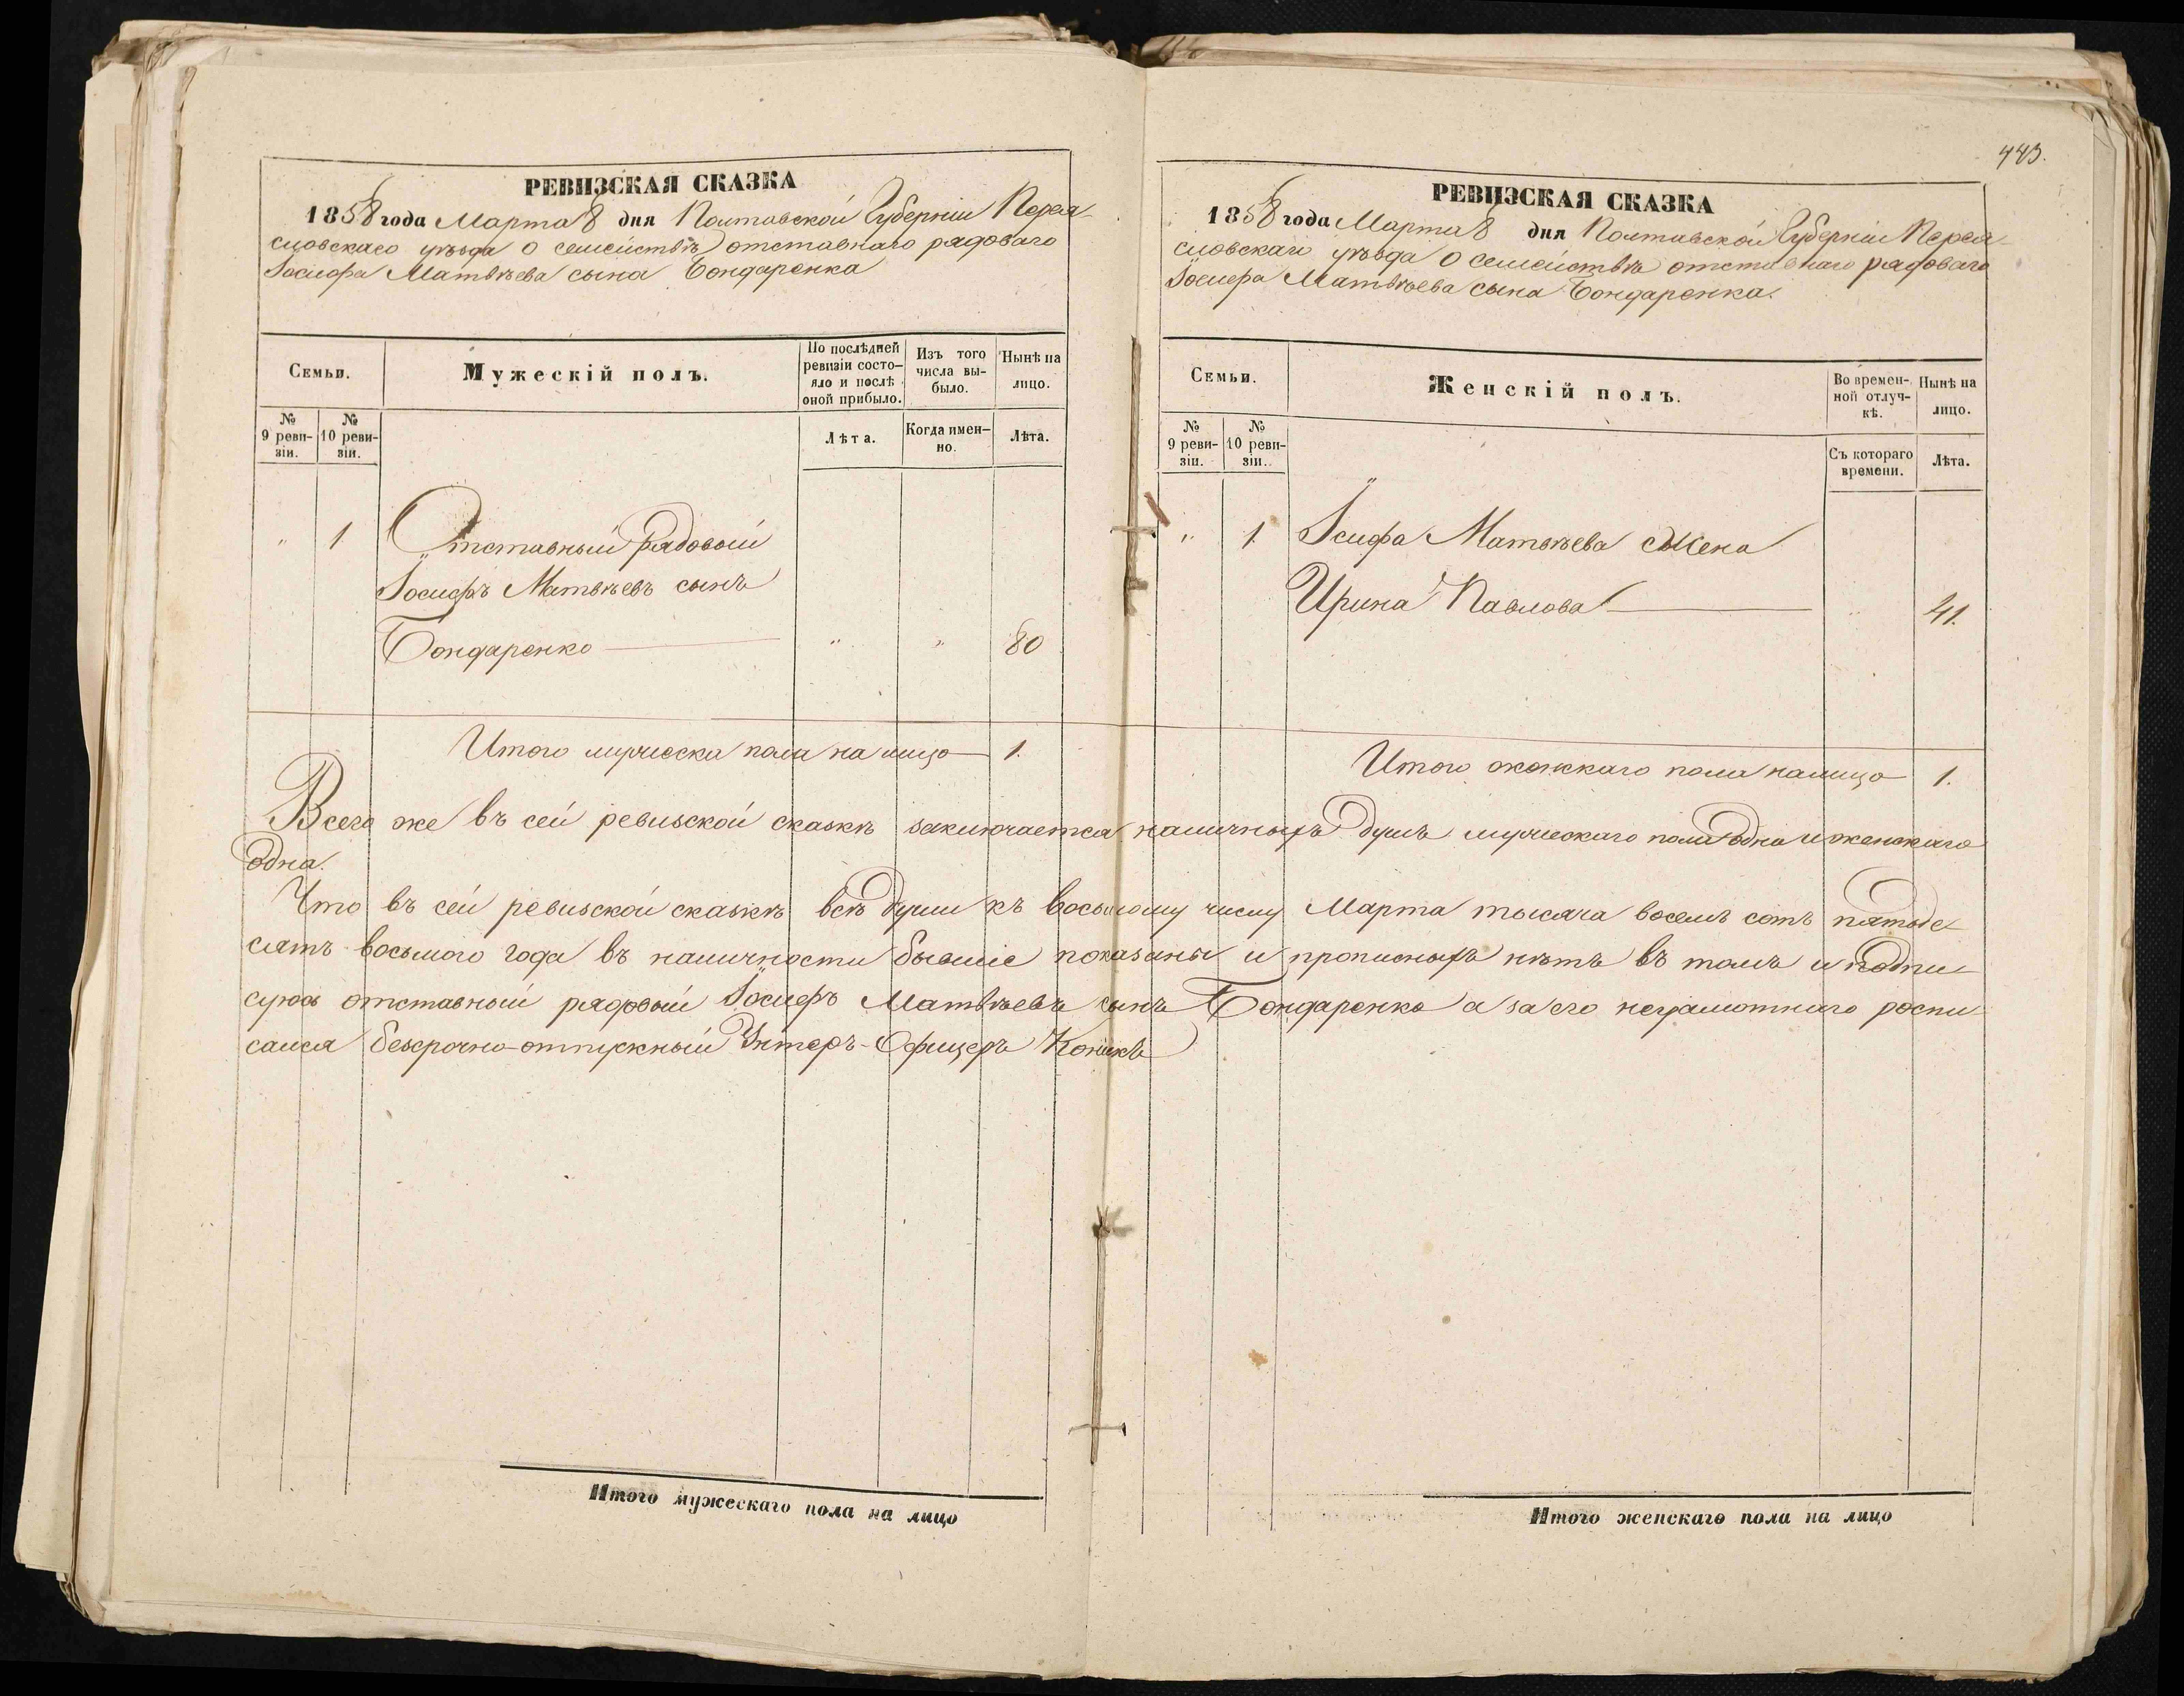 РЕВИЗСКАЯ СКАЗКА
1858 года Марта 8 дня Полтавской Губерніи Перея-
словскаго уѣзда о семействѣ отставнаго рядоваго
Іосифа Матвѣева сына Бондаренка
Семьи.
Мужескій полъ.
По послѣдней ревизіи состо-яло и послѣ оной прибыло.
Изъ того числа вы-было.
Нынѣ на лицо.
№ 9 реви-зіи.
№ 10 реви-зіи.
Лѣта.
Когда имен-но.
Лѣта.
" 1 Отставный рядовый
Іосифъ Матвѣевъ сынъ
Бондаренко " " 80
Итого мужеска пола на лицо 1.
443.
РЕВИЗСКАЯ СКАЗКА
1858 года Марта 8 дня Полтавской Губерніи Перея-
словскаго уѣзда о семействѣ отставнаго рядоваго
Іосифа Матвѣева сына Бондаренка.
Семьи.
Женскій полъ.
Во времен-ной отлуч-кѣ.
Нынѣ на лицо.
№ 9 реви-зіи.
№ 10 реви-зіи.
Съ котораго времени.
Лѣта.
" 1. Іосифа Матвѣева жена
Ирина Павлова " 41.
Итого женскаго пола налицо 1.
Всего же въ сей ревизской сказкѣ заключается наличныхъ душъ мужескаго пола одна и женскаго
одна.
Что въ сей ревизской сказкѣ всѣ души къ восьмому числу Марта тысяча восемъ сотъ пятьде-
сятъ восьмого года въ наличности бывшіе показаны и прописныхъ нѣтъ въ томъ и подпи-
суюсь отставный рядовый Іосифъ Матвѣевъ сынъ Бондаренко а за его неграмотнаго роспи-
сался безсрочно-отпускный Унтеръ-Офицеръ
Итого мужескаго пола на лицо
Итого женскаго пола на лицо